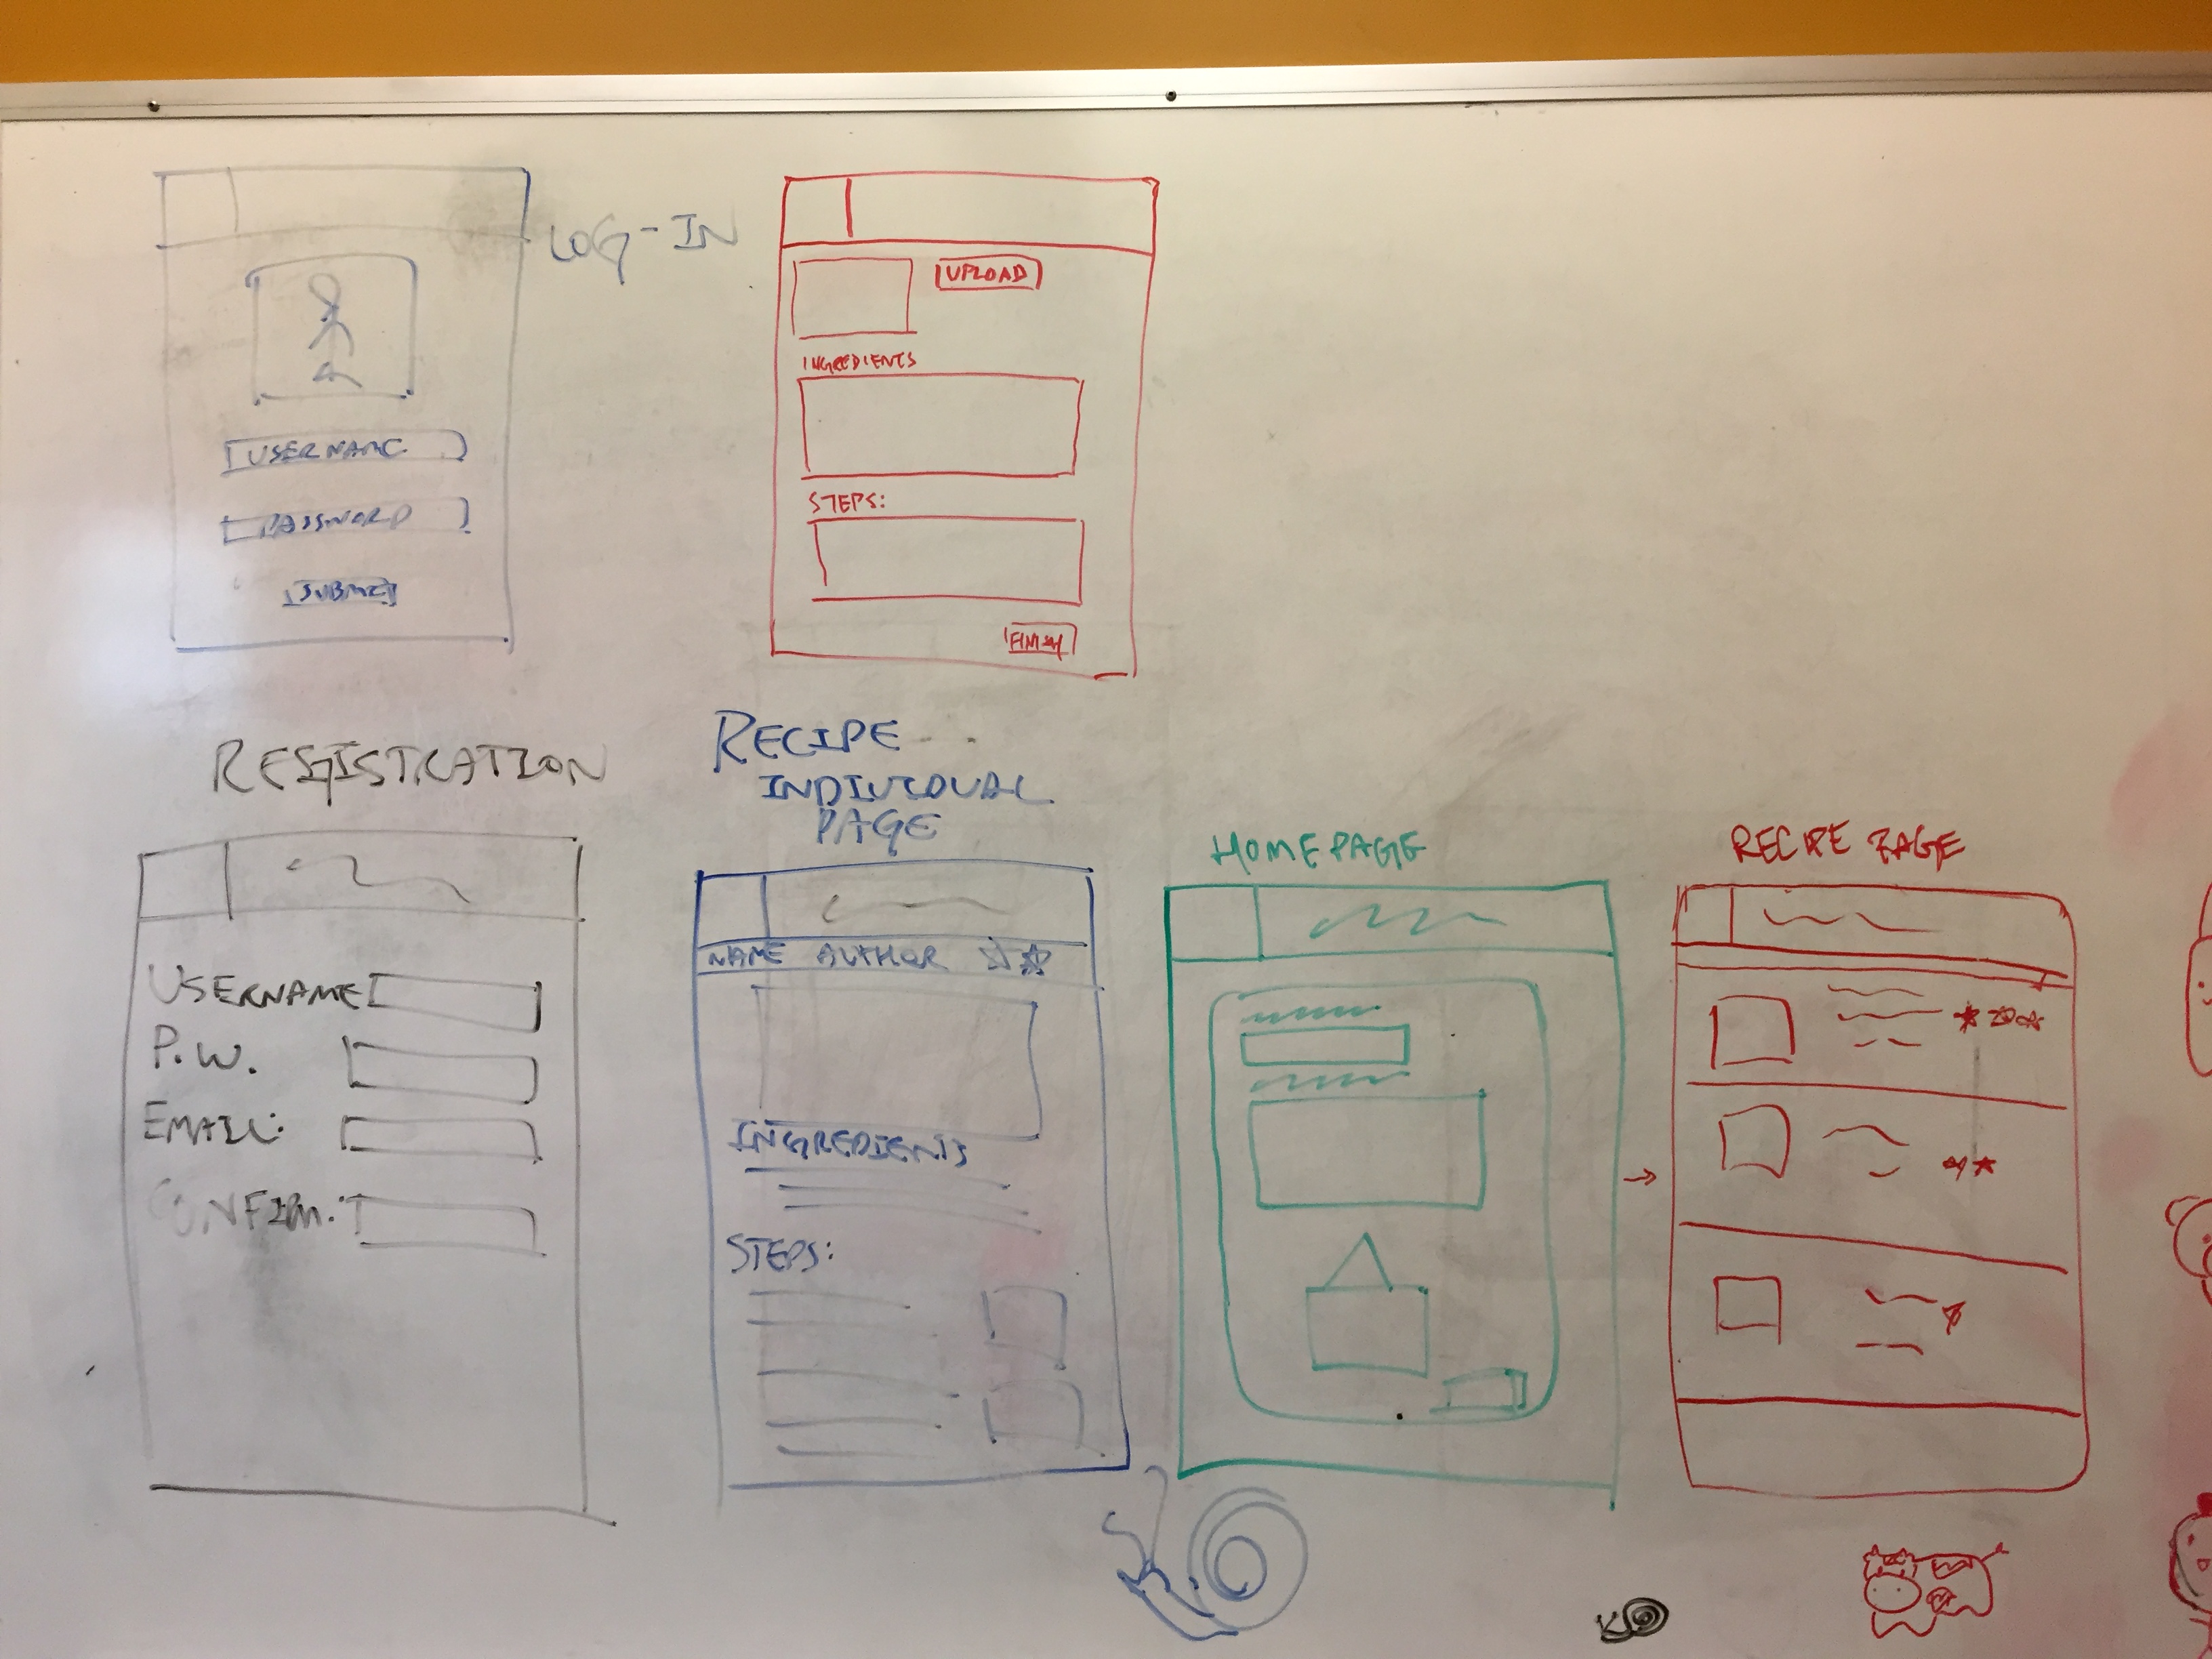 LOG-IN
USERNAME
PASSWORD
SUBMIT
UPLOAD
INGREDIENTS
STEPS:
FINISH
REGISTRATION
USERNAME
P.W.
EMAIL:
CONFIRM:
RECIPE
INDIVIDUAL
PAGE
NAME AUTHOR
INGREDIENTS
STEPS:
HOMEPAGE
RECIPE PAGE